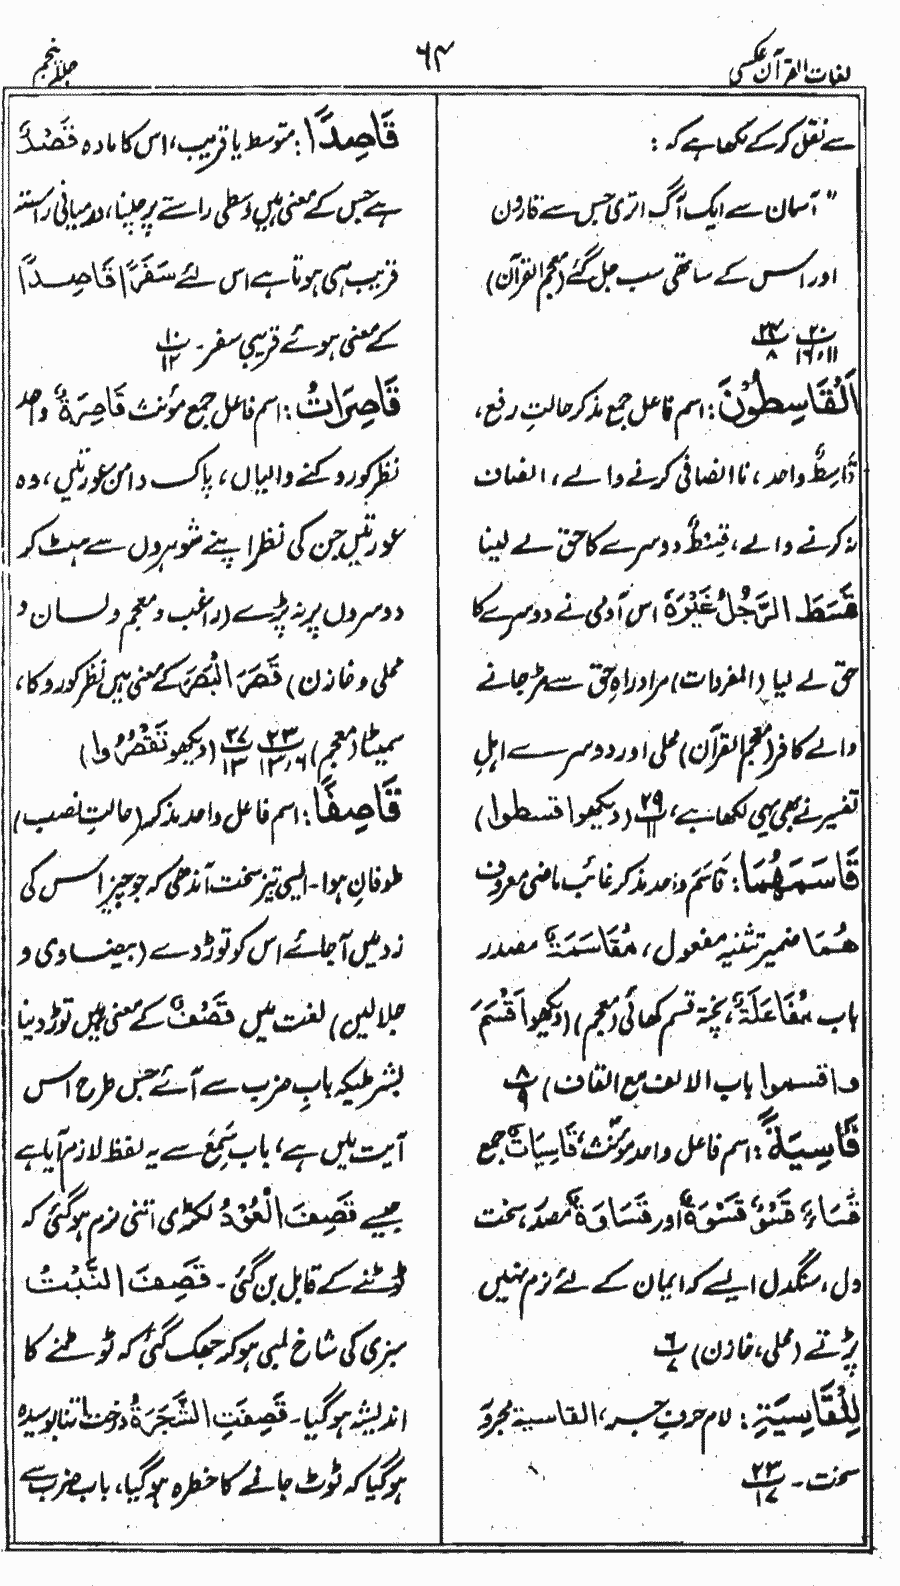 لغات القرآن عکسی
۶۴
جلد پنجم
سے نقل کرکے لکھا ہے کہ :
"آسمان سے ایک آگ اتری جس سے قارون
اور اس کے ساتھی سب جل گئے (معجم القرآن)
۲۰ ۲۴
۱۱،۱۶ ۸
اَلْقَاسِطُوْنَ : اسم فاعل جمع مذکر حالتِ رفع،
قَاسِطٌ واحد، نا انصافی کرنے والے، انصاف
نہ کرنے والے، قِسْطٌ دوسرے کا حق لے لینا
قَسَطَ الرَّجُلُ غَیْرَہٗ اس آدمی نے دوسرے کا
حق لے لیا (المفردات) مراد راہِ حق سے مڑ جانے
والے کافر (معجم القرآن) محلی اور دوسرے اہلِ
تفسیر نے بھی یہی لکھا ہے، ۲۹/۱۱ (دیکھو اقسطوا)
قَاسَمَهُمَا : قَاسَمَ واحد مذکر غائب ماضی معروف
هُمَا ضمیر تثنیہ مفعول، مُقَاسَمَةٌ مصدر
باب مُفَاعَلَةٌ، پختہ قسم کھائی (معجم) (دیکھو اَقْسَمَ
و اقسموا باب الالف مع القاف) ۸/۹
قَاسِيَةً : اسم فاعل واحد مؤنث، قَاسِيَاتٌ جمع
قَسَاءٌ، قَسْوٌ، قَسْوَةٌ اور قَسَاوَةٌ مصدر، سخت
دل، سنگدل ایسے کہ ایمان کے لئے نرم نہیں
پڑتے (محلی، خازن) ۶/۷
لِلْقَاسِيَةِ : لام حرفِ جر، القاسیة مجرور
سخت - ۲۳/۱۷
قَاصِدًا : متوسط یا قریب، اس کا مادہ قَصْدٌ
ہے جس کے معنی ہیں وسطی راستے پر چلنا، درمیانی راستہ
قریب ہی ہوتا ہے اس لئے سَفَرًا قَاصِدًا
کے معنی ہوئے قریبی سفر - ۱۰/۱۲
قَاصِرَاتُ : اسم فاعل جمع مؤنث قَاصِرَةٌ واحد
نظر کو روکنے والیاں، پاک دامن عورتیں، وہ
عورتیں جن کی نظر اپنے شوہروں سے ہٹ کر
دوسروں پر نہ پڑے (راغب و معجم و لسان و
محلی و خازن) قَصَرَ الْبَصَرَ کے معنی ہیں نظر کو روکا،
سمیٹا (معجم) ۲۳/۶،۱۳ ۲۷/۱۳ (دیکھو تَقْصُرُوا)
قَاصِفًا : اسم فاعل واحد مذکر (حالتِ نصب)
طوفانِ ہوا - ایسی تیز سخت آندھی کہ جو چیز اس کی
زد میں آجائے اس کو توڑ دے (بیضاوی و
جلالین) لغت میں قَصْفٌ کے معنی ہیں توڑ دینا
بشرطیکہ بابِ ضرب سے آئے جس طرح اس
آیت میں ہے، باب سَمِعَ سے یہ لفظ لازم آیا ہے
جیسے قَصِفَ الْعُوْدُ لکڑی اتنی نرم ہوگئی کہ
ٹوٹنے کے قابل بن گئی - قَصِفَ النَّبْتُ
سبزی کی شاخ لمبی ہوکر جھک گئی کہ ٹوٹنے کا
اندیشہ ہو گیا - قَصِفَتِ الشَّجَرَةُ درخت اتنا بوسیدہ
ہو گیا کہ ٹوٹ جانے کا خطرہ ہو گیا، باب ضرب سے